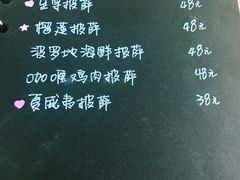 至尊披萨 48元
榴莲披萨 48元
波罗地海鲜披萨 48元
喔鸡肉披萨 48元
夏威夷披萨 38元